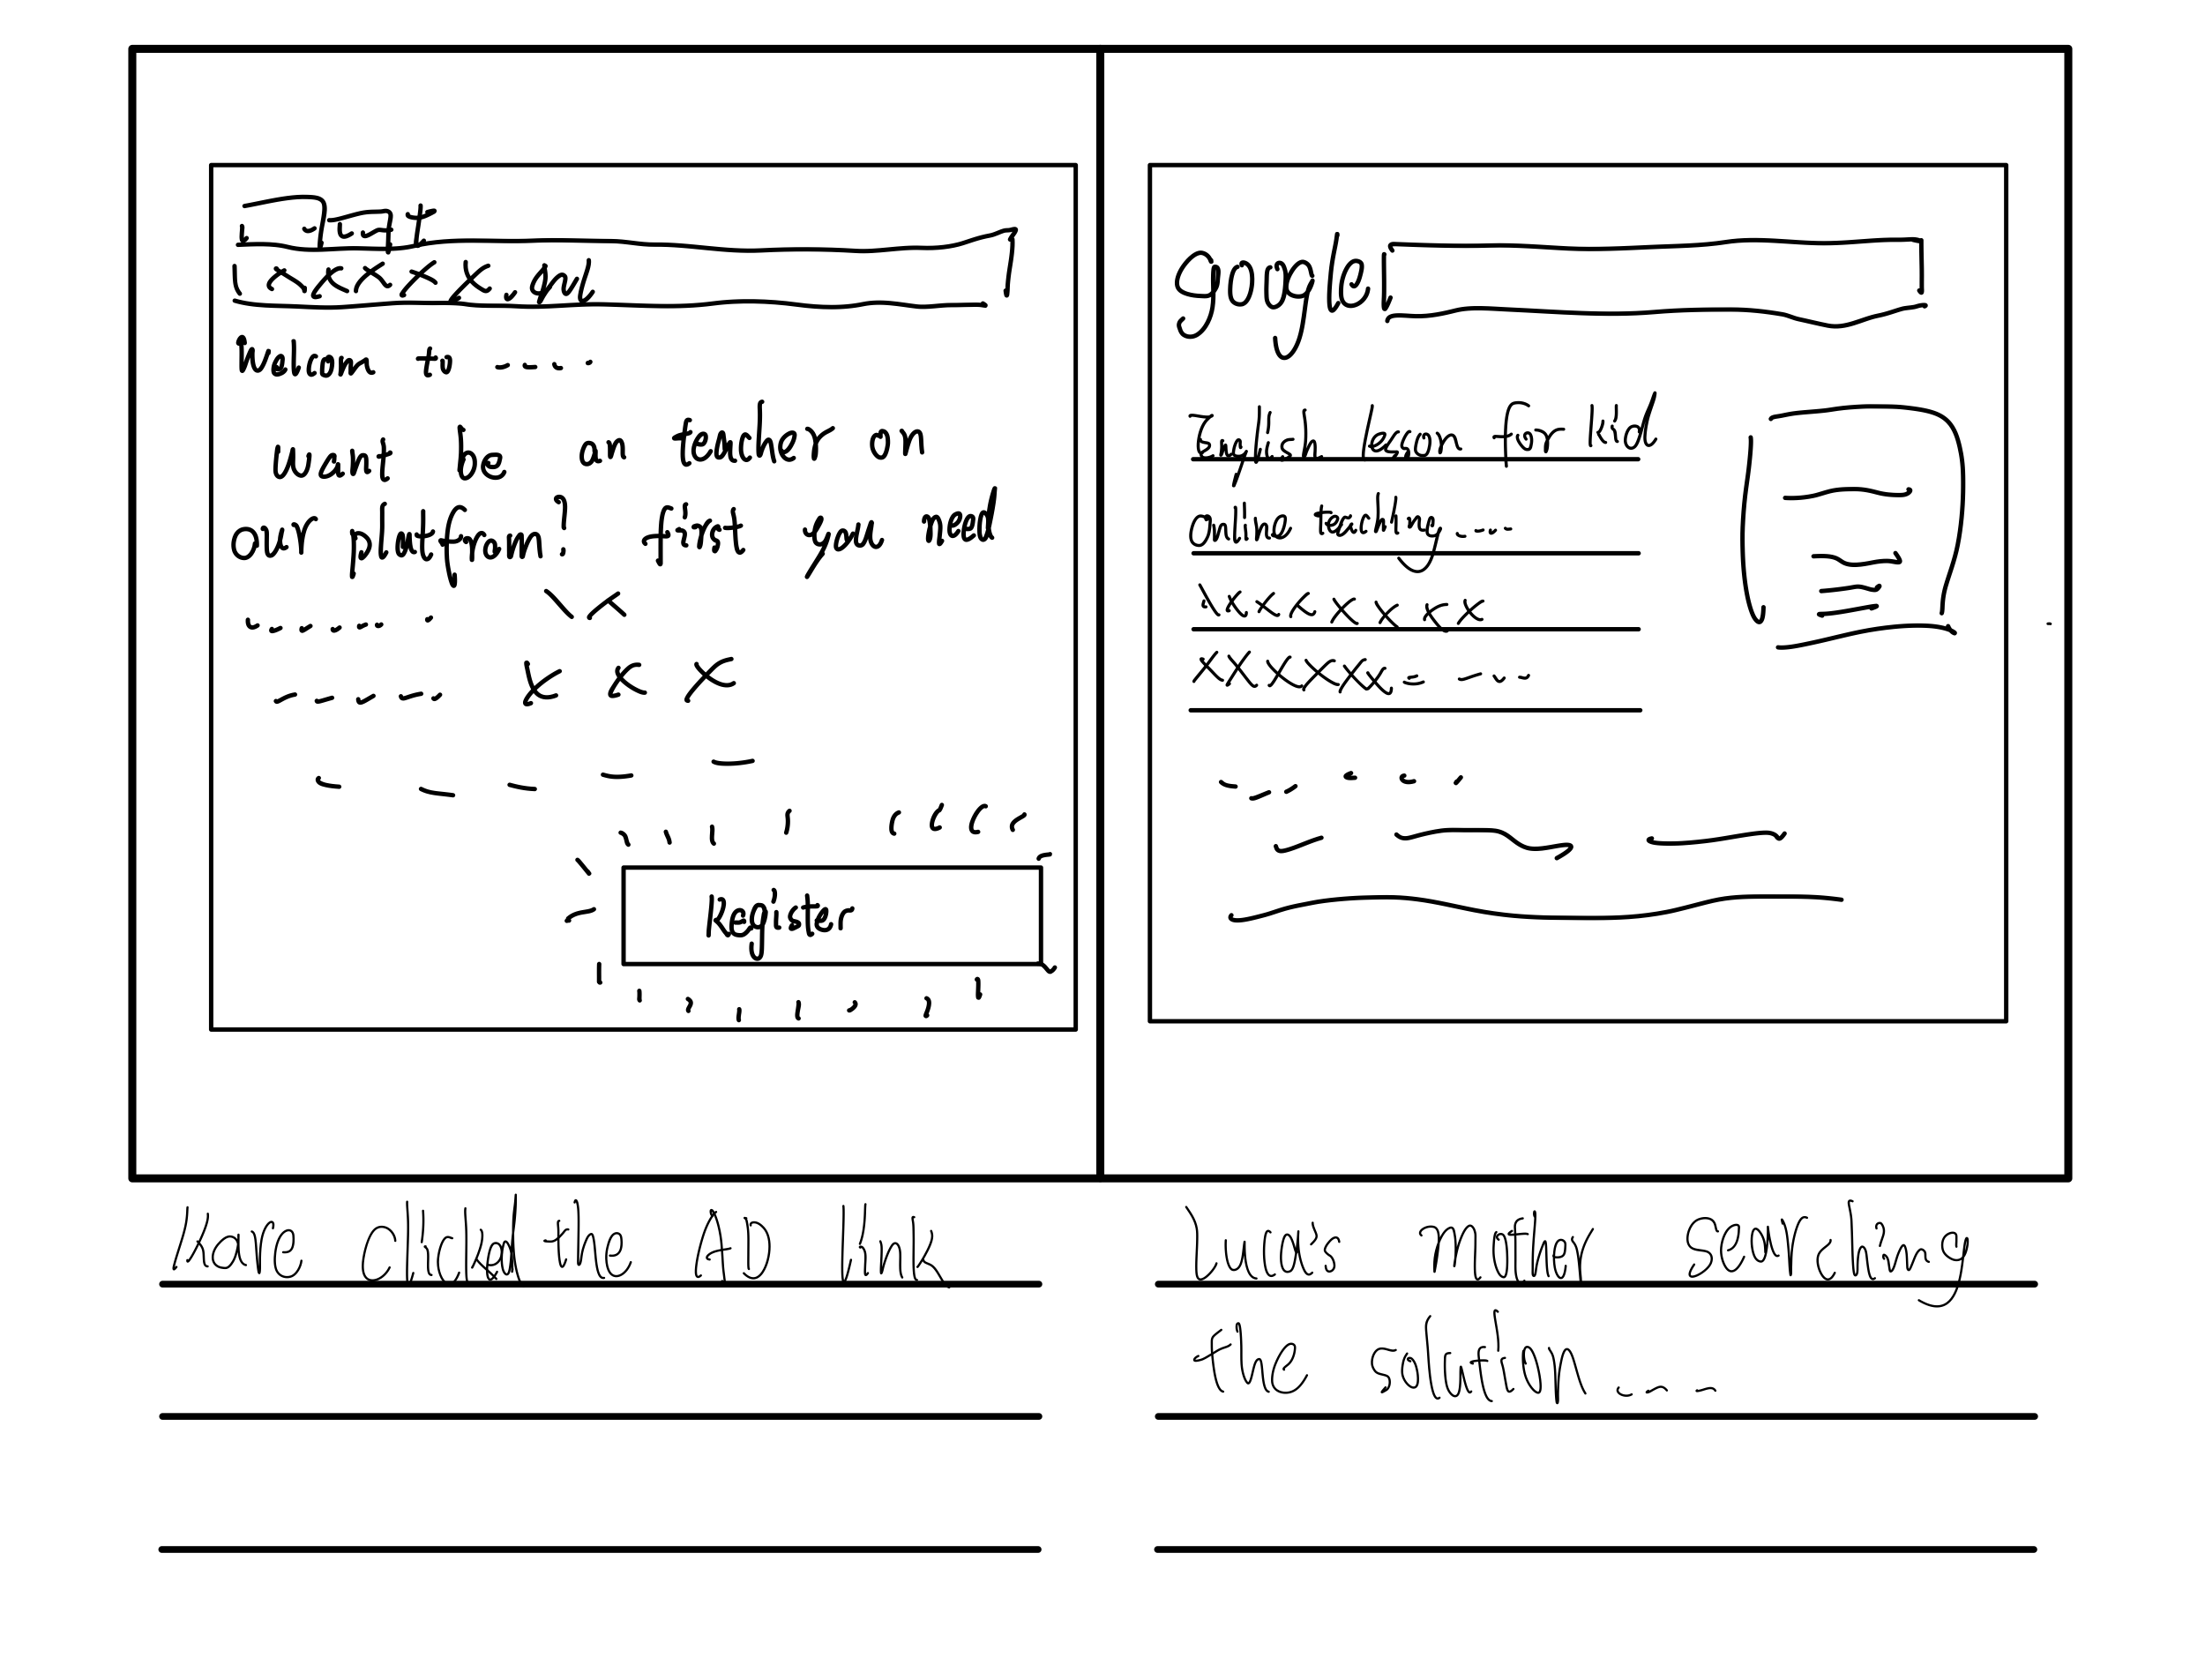 xxxxx.and
Welcom to .....
want be a on teacher on
our platform? first you need
Register
google
English lesson for kid
online teaching ....
Kare clicked the AD link
Luca's mother searching
the solution....